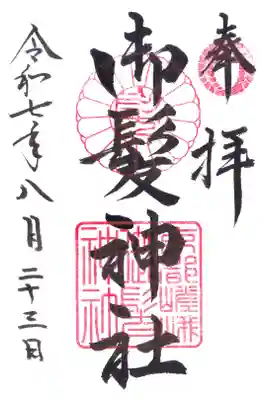 奉拝
御髪神社
令和七年八月二十三日